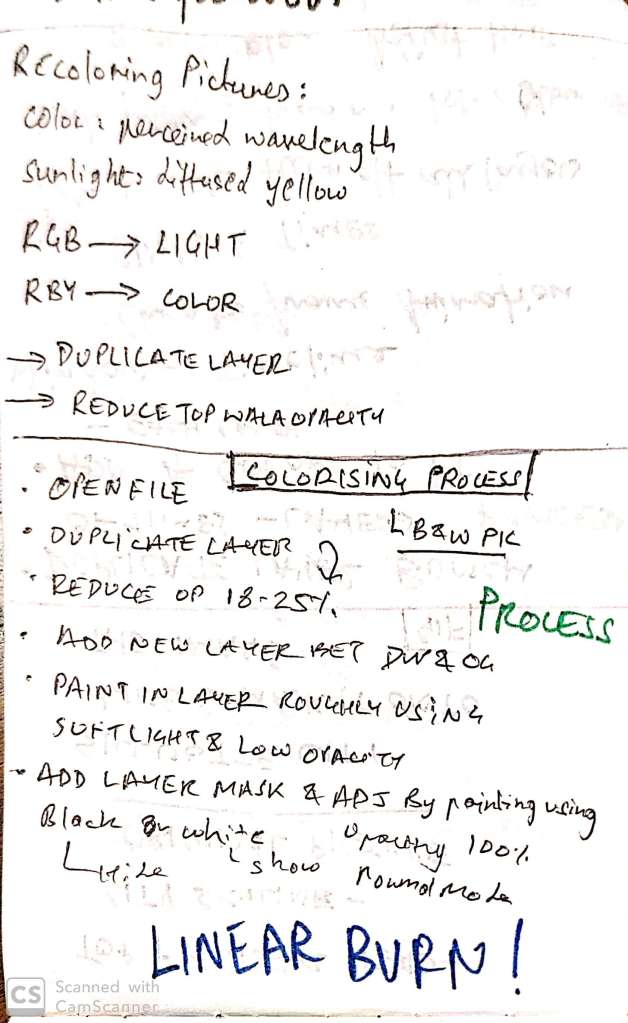 Recoloring Pictures:
Color: perceived wavelength
Sunlight: diffused yellow
RGB → LIGHT
RBY → COLOR
→ DUPLICATE LAYER
→ REDUCE TOP WALA OPACITY
COLORISING PROCESS
• OPEN FILE
B&W PIC
• DUPLICATE LAYER
• REDUCE OP 18-25%
PROCESS
• ADD NEW LAYER BET DUP & OG
• PAINT IN LAYER ROUGHLY USING
SOFTLIGHT & LOW OPACITY
• ADD LAYER MASK & ADJ By painting using
Black or white Opacity 100%
Hide show normal mode
LINEAR BURN!
CS Scanned with
CamScanner